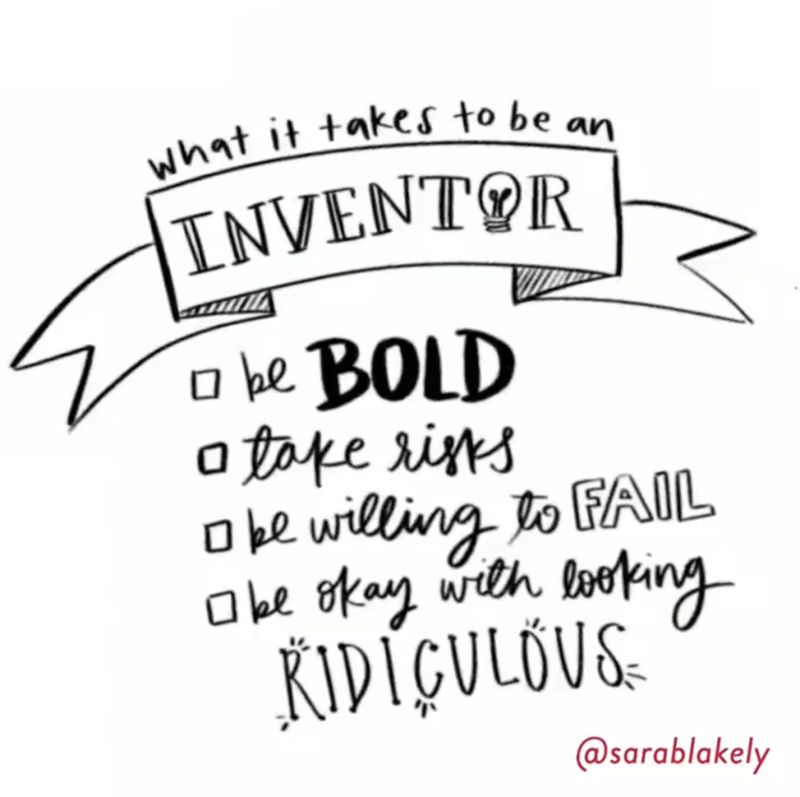 what it takes to be an
INVENTOR
be BOLD
take risks
be willing to FAIL
be okay with looking
RIDICULOUS
@sarablakely